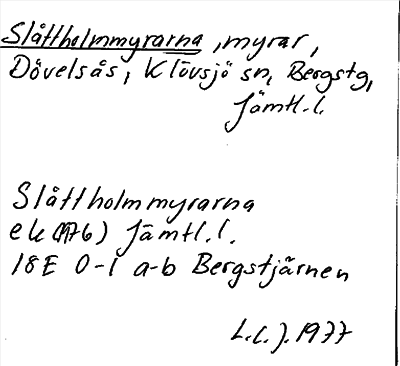 Slåttholmmyrarna, myrar,
Dövelsås, Klövsjö sn, Bergstg,
Jämtl.l.
Slåttholmmyrarna
ek (1976) Jämtl.l.
18E 0-1 a-b Bergstjärnen
L.C.J. 1977